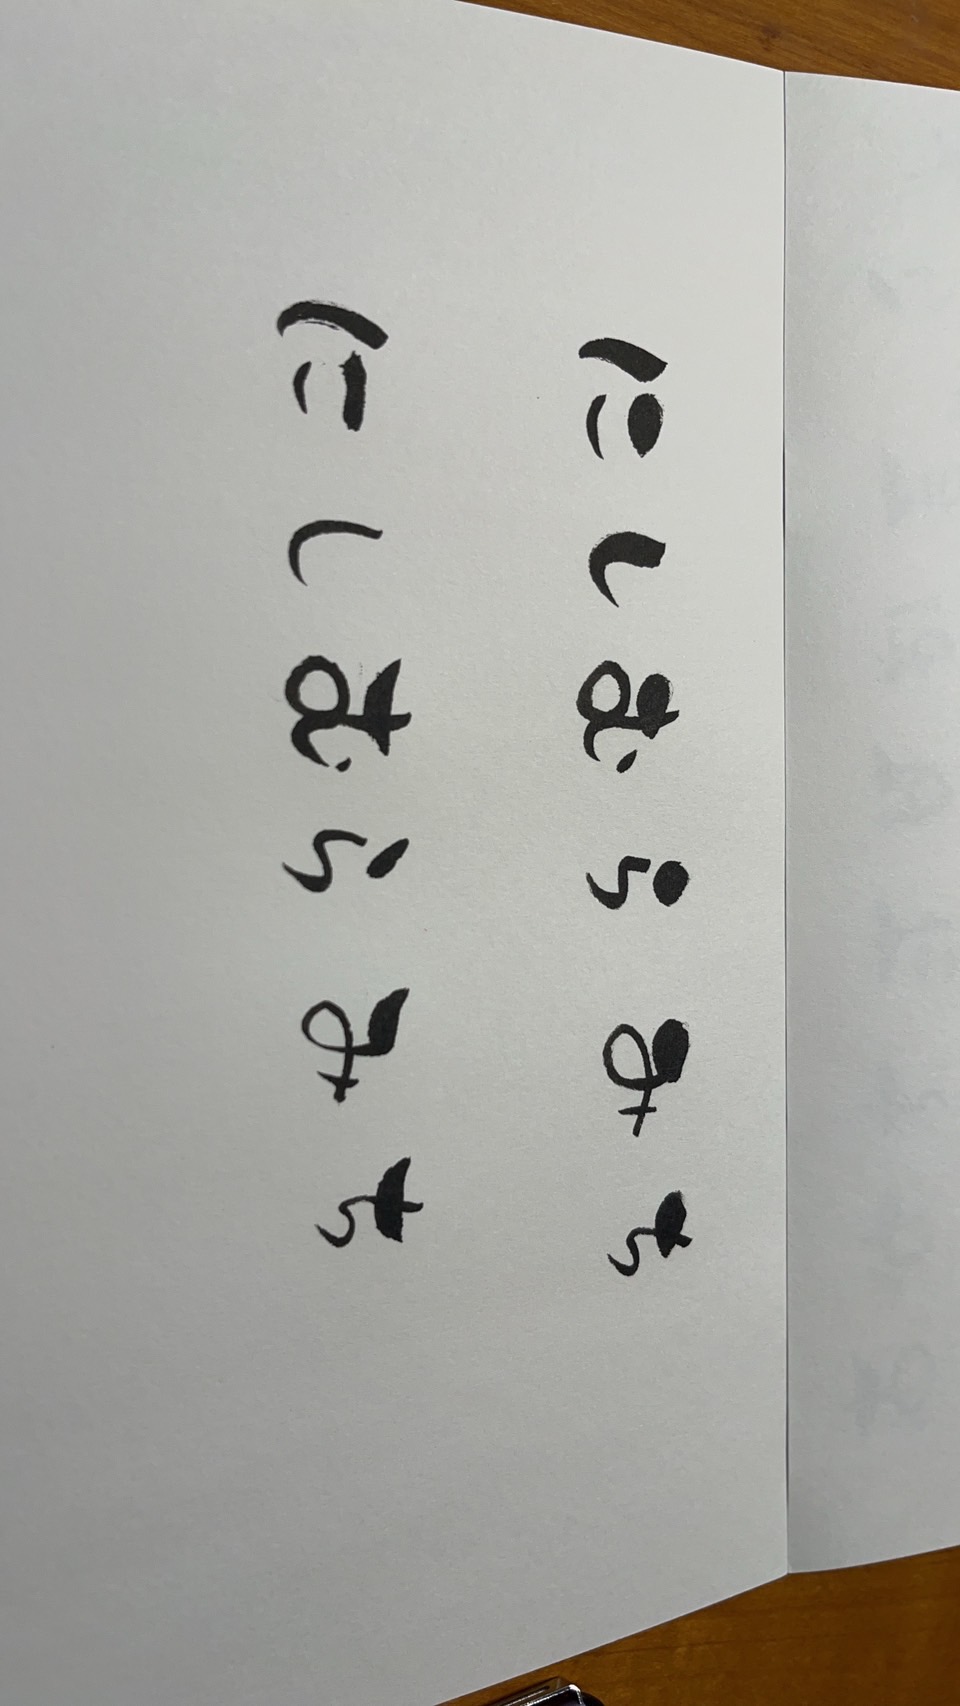 にしむらみち
にしむらみち